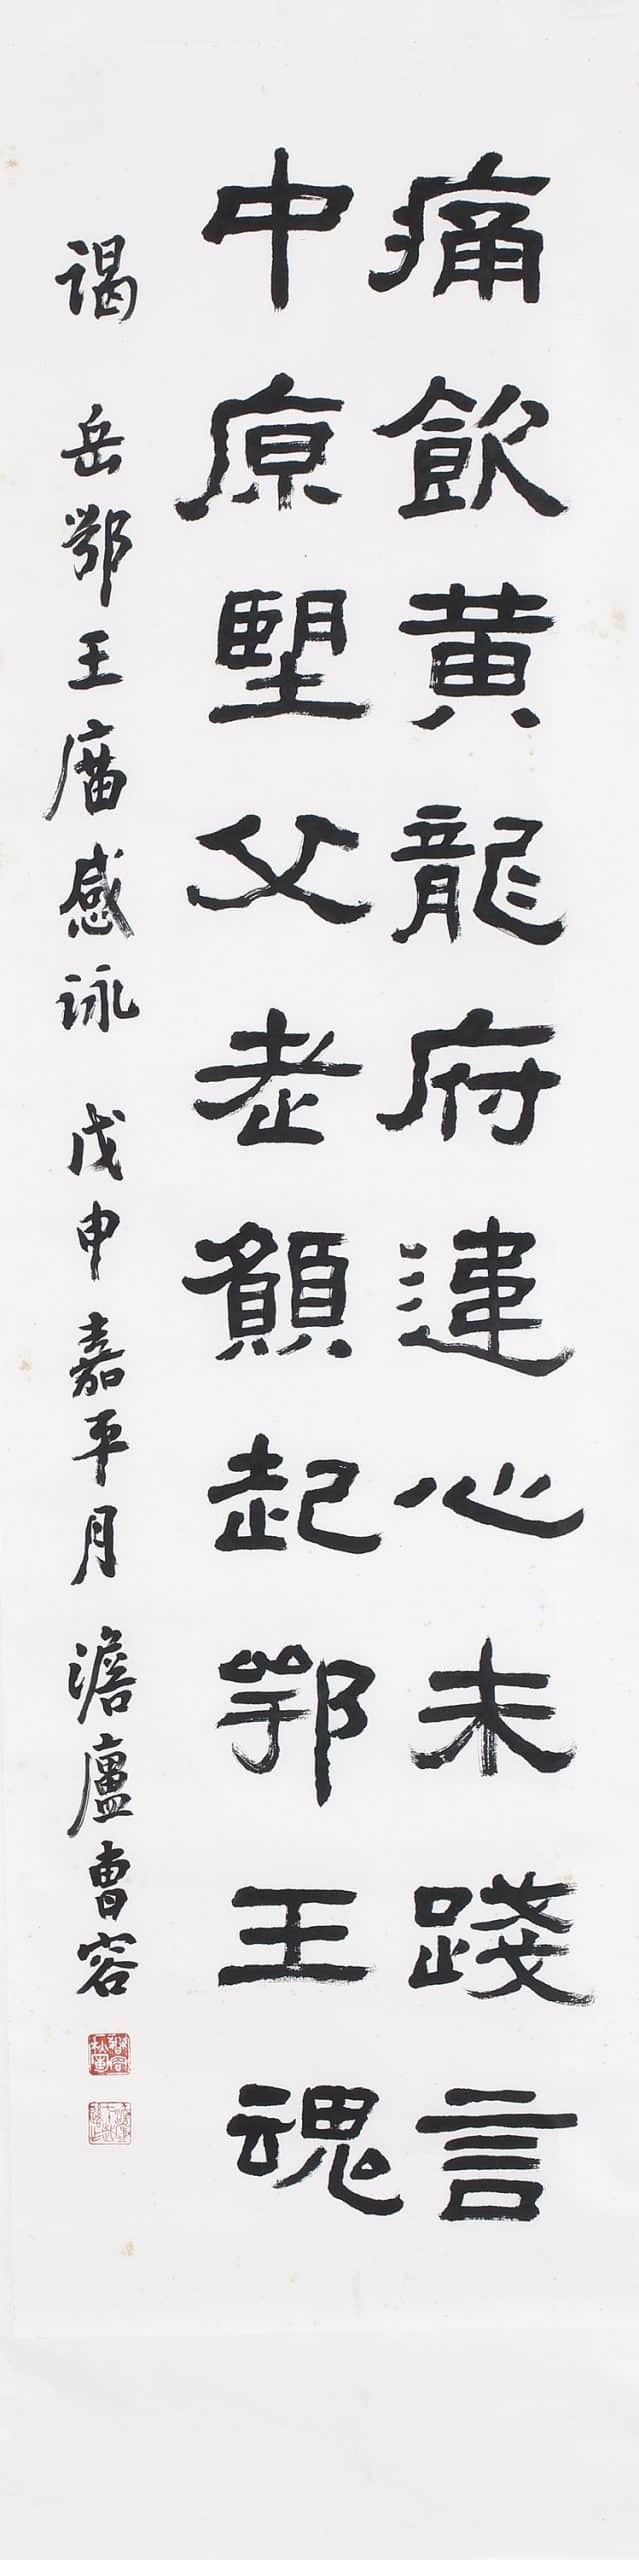 痛飲黃龍府違心未踐言
中原朢父老願起鄂王魂
謁 岳鄂王庿感詠 戊申嘉平月 澹廬曹容